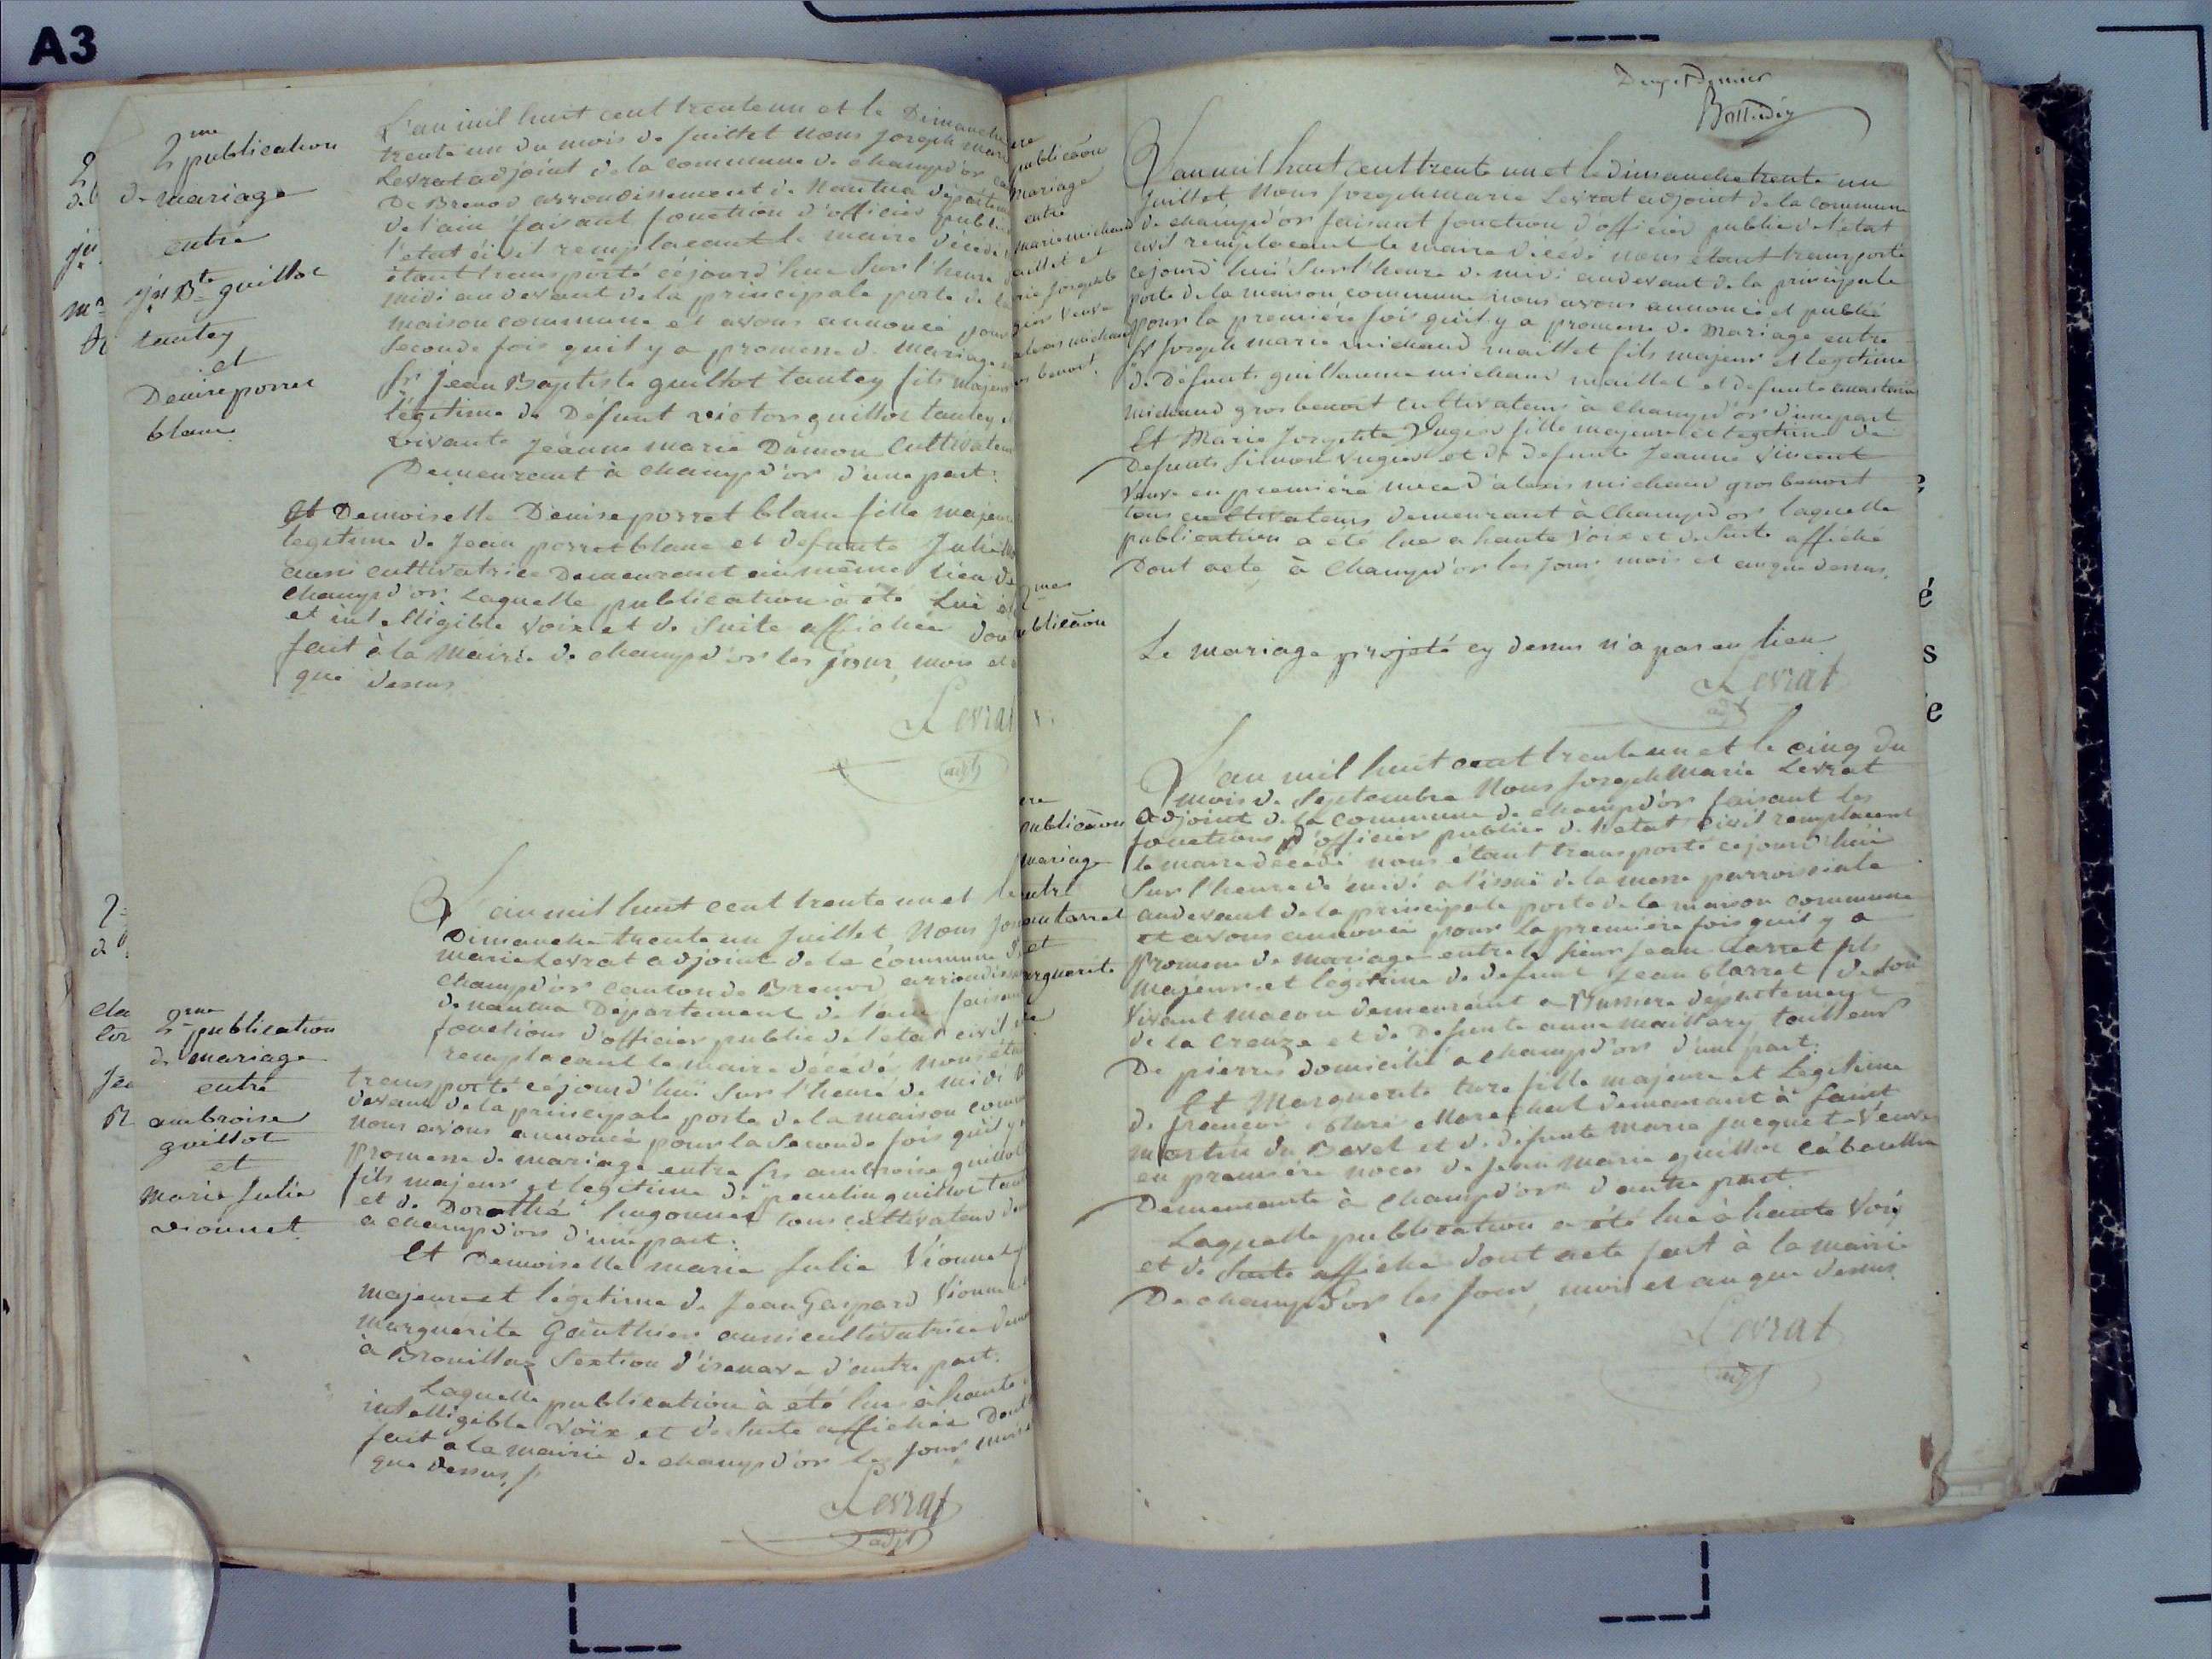 A3
2me publication
de mariage
entre
jn Bte guillot
tantey
et
Denise porret
blanc
L'an mil huit cent trente un et le Dimanche
trente un du mois de Juillet Nous Joseph marie
Levrat adjoint de la commune de champd'or
De Brenod arrondissement de Nantua département
de l'ain faisant fonction d'officier public
l'etat civil remplacant le maire décédé
étant transporté céjourd'hui Sur l'heure
midi audevant de la principale porte de la
maison commune et avons annoncé pour
Seconde fois quil y a promesse de mariage
Sr Jean Baptiste guillot tantey fils majeur
légitime de Défunt victor guillot tantey
vivante Jeanne marie Damon Cultivateur
Demeurant à champd'or d'une part.
Et Demoiselle Denise porret blanc fille majeure
legitime de Jean porret blanc et defunte Julie
aussi cultivatrice Demeurant au même lieu de
champd'or. Laquelle publication à été Lue
et intelligible voix et de Suite affichée
fait à la Mairie de champd'or les jour, mois et
que dessus
Levrat
adjt
2me publication
de mariage
entre
ambroise
guillot
et
Marie Julie
vionnet
L'an mil huit cent trente un et le
Dimanche trente un Juillet, Nous
marie Levrat adjoint de la commune
champd'or canton de Brenod
de nantua Département de l'ain faisant
fonctions d'officier public de l'etat civil
remplacant le maire décédé nous
transporté céjourd'hui Sur l'heure de midi
devant de la principale porte de la maison
Nous avons annoncé pour la Seconde fois quil y
promesse de mariage entre Sr ambroise guillot
fils majeur et legitime de paulin guillot
et de Dorothé hugonnet tous cultivateurs
a champd'or d'une part.
Et Demoiselle marie Julie Vionnet
majeure et légitime de Jean Gaspard Vionnet
marguerite Gauthier aussi cultivatrice
à Brouillaz Section d'isenave d'autre part.
Laquelle publication à été lue à haute
intelligible voix et de Suite affichée Dont
fait a la mairie de champd'or les jour mois
que dessus
Levrat
adjt
publicaon
mariage
entre
marie michaud
maillet et
Benoit
2me
publicaon
publicaon
mariage
entre
et
marguerite
L'an mil huit cent trente un et le dimanche trente un
Juillet, Nous Joseph marie Levrat adjoint de la commune
de champd'or faisant fonction d'officier public de l'état
civil remplacant le maire décédé nous étant transporté
cejourd'hui Sur l'heure de midi audevant de la principale
porte de la maison commune nous avons annoncé et publié
pour la premiere fois qu'il y a promesse de Mariage entre
Sr Joseph marie michaud maillet fils majeur et legitime
de Défunt guillaume michaud maillet et defunte
michaud gros benoit cultivateur à Champd'or d'une part
Et Marie Josephte Vuger fille majeure et legitime de
Defunts Simon Vuger et de defunte Jeanne Vincent
Veuve en première noce d'alexis michaud gros benoit
tous cultivateurs demeurant à Champd'or laquelle
publication a été lue a haute Voix et de Suite affiché
Dont acte à Champd'or les Jour mois et an que dessus.
Le mariage projeté cy dessus n'a pas eu lieu
Levrat
adjt
L'an mil huit cent trente un et le cinq du
mois de Septembre Nous Joseph Marie Levrat
adjoint de la commune de champd'or faisant les
fonctions d'officier public de l'etat civil remplacant
le maire décédé nous étant transporté cejourd'hui
Sur l'heure de midi a l'issue de la messe parroissiale
audevant de la principale porte de la maison commune
et avons annoncé pour la premiere fois quil y a
Promesse de mariage entre le sieur Jean tarret fils
majeur et légitime de defunt Jean tarret de Son
Vivant macon demeurant a département
de la Creuze et de Defunte anne maillary tailleur
De pierres domicilié a champd'or d'une part.
Et Marguerite ture fille majeure et Legitime
de francois ture Marechal demeurant à Saint
martin du Bavel et de défunte Marie Jacquet Veuve
en première noces de Jean Marie guillot
Demeurante à Champd'or d'autre part
Laquelle publication a été lue à haute Voix
et de Suite affichée dont acte fait à la mairie
De champd'or les jour, mois et an que dessus.
Levrat
adjt